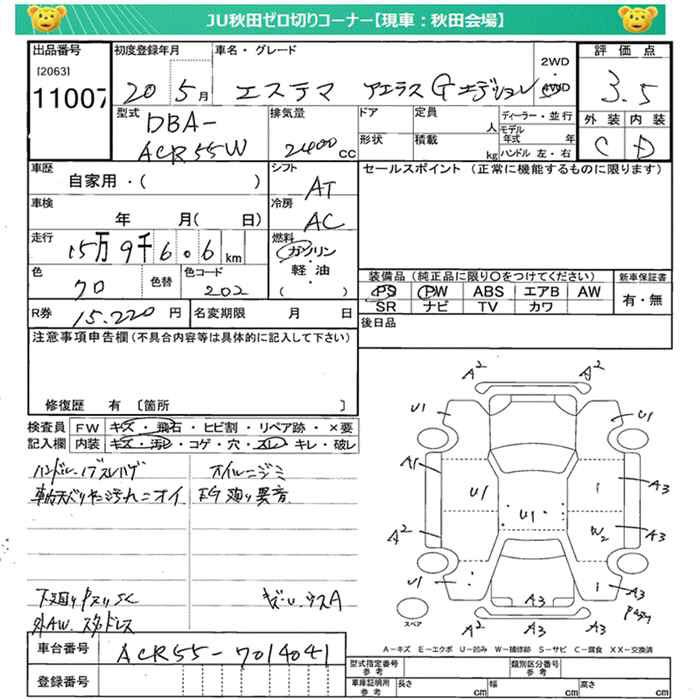 JU秋田ゼロ切りコーナー【現車：秋田会場】
出品番号
[2063]
11007
初度登録年月
20 5月
車名・グレード
エスティマ アエラス Gエディション
2WD
4WD
評価点
3.5
外装 内装
C D
型式
DBA-
ACR55W
排気量
2400cc
ドア
定員
人
ディーラー・並行
形状
積載
kg
モデル年式
年
ハンドル 左・右
車歴
自家用・( )
シフト
AT
セールスポイント (正常に機能するものに限ります)
車検
年 月( 日)
冷房
AC
走行
15万9千6.6km
燃料
ガソリン
・
軽・油
・
( )
色
70
色替
色コード
202
装備品 (純正品に限り○をつけてください)
新車保証書
PS PW ABS エアB AW
SR ナビ TV カワ
有・無
R券 15.220円
名変期限 月 日
後日品
注意事項申告欄 (不具合内容等は具体的に記入して下さい)
修復歴 有 〔箇所 〕
検査員
記入欄
FW キズ・飛石・ヒビ割・リペア跡・×要
内装 キズ・汚レ・コゲ・穴・スレ・キレ・破レ
オイルニジミ
下廻りPスリSC
外AW、スタッドレス
車台番号
ACR55-7014041
登録番号
A2 A2
U1 U1
A1 U1 U1 A3
A2 W2 A3
U1 A3 A3
A3 A3
スペア
A－キズ E－エクボ U－凹み W－補修跡 S－サビ C－腐食 XX－交換済
型式指定番号
参考
類別区分番号
参考
車庫証明用
参考
長さ cm
幅 cm
高さ cm